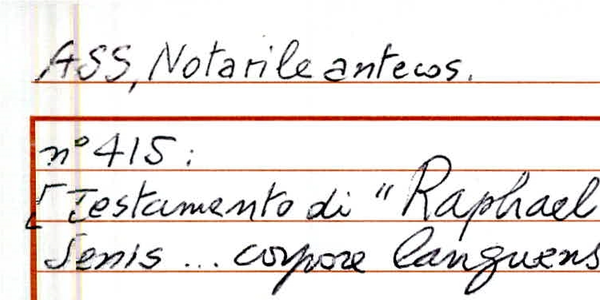 ASS, Notarile antecos.
n° 415:
[Testamento di "Raphael
Senis ... corpore languens